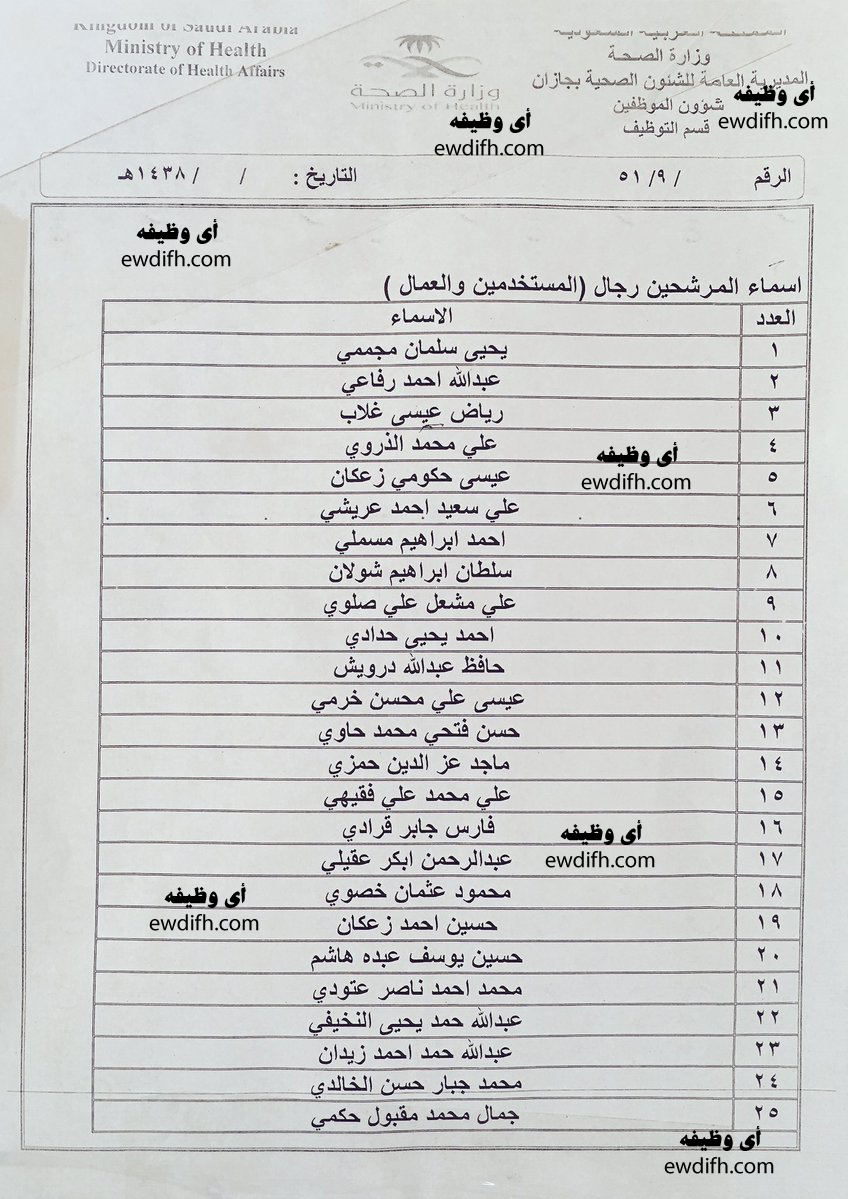 Kingdom of Saudi Arabia
Ministry of Health
Directorate of Health Affairs
وزارة الصحة
Ministry of Health
المملكة العربية السعودية
وزارة الصحة
المديرية العامة للشئون الصحية بجازان
شؤون الموظفين
قسم التوظيف
أى وظيفه
ewdifh.com
أى وظيفه
ewdifh.com
الرقم / ٩/ ٥١ التاريخ : / / ١٤٣٨هـ
أى وظيفه
ewdifh.com
اسماء المرشحين رجال (المستخدمين والعمال )
العدد الاسماء
١ يحيى سلمان مجممي
٢ عبدالله احمد رفاعي
٣ رياض عيسى غلاب
٤ علي محمد الذروي
أى وظيفه
ewdifh.com
٥ عيسى حكومي زعكان
٦ علي سعيد احمد عريشي
٧ احمد ابراهيم مسملي
٨ سلطان ابراهيم شولان
٩ علي مشعل علي صلوي
١٠ احمد يحيى حدادي
١١ حافظ عبدالله درويش
١٢ عيسى علي محسن خرمي
١٣ حسن فتحي محمد حاوي
١٤ ماجد عز الدين حمزي
١٥ علي محمد علي فقيهي
١٦ فارس جابر قرادي
أى وظيفه
ewdifh.com
١٧ عبدالرحمن ابكر عقيلي
١٨ محمود عثمان خصوي
أى وظيفه
ewdifh.com
١٩ حسين احمد زعكان
٢٠ حسين يوسف عبده هاشم
٢١ محمد احمد ناصر عتودي
٢٢ عبدالله حمد يحيى النخيفي
٢٣ عبدالله حمد احمد زيدان
٢٤ محمد جبار حسن الخالدي
٢٥ جمال محمد مقبول حكمي
أى وظيفه
ewdifh.com